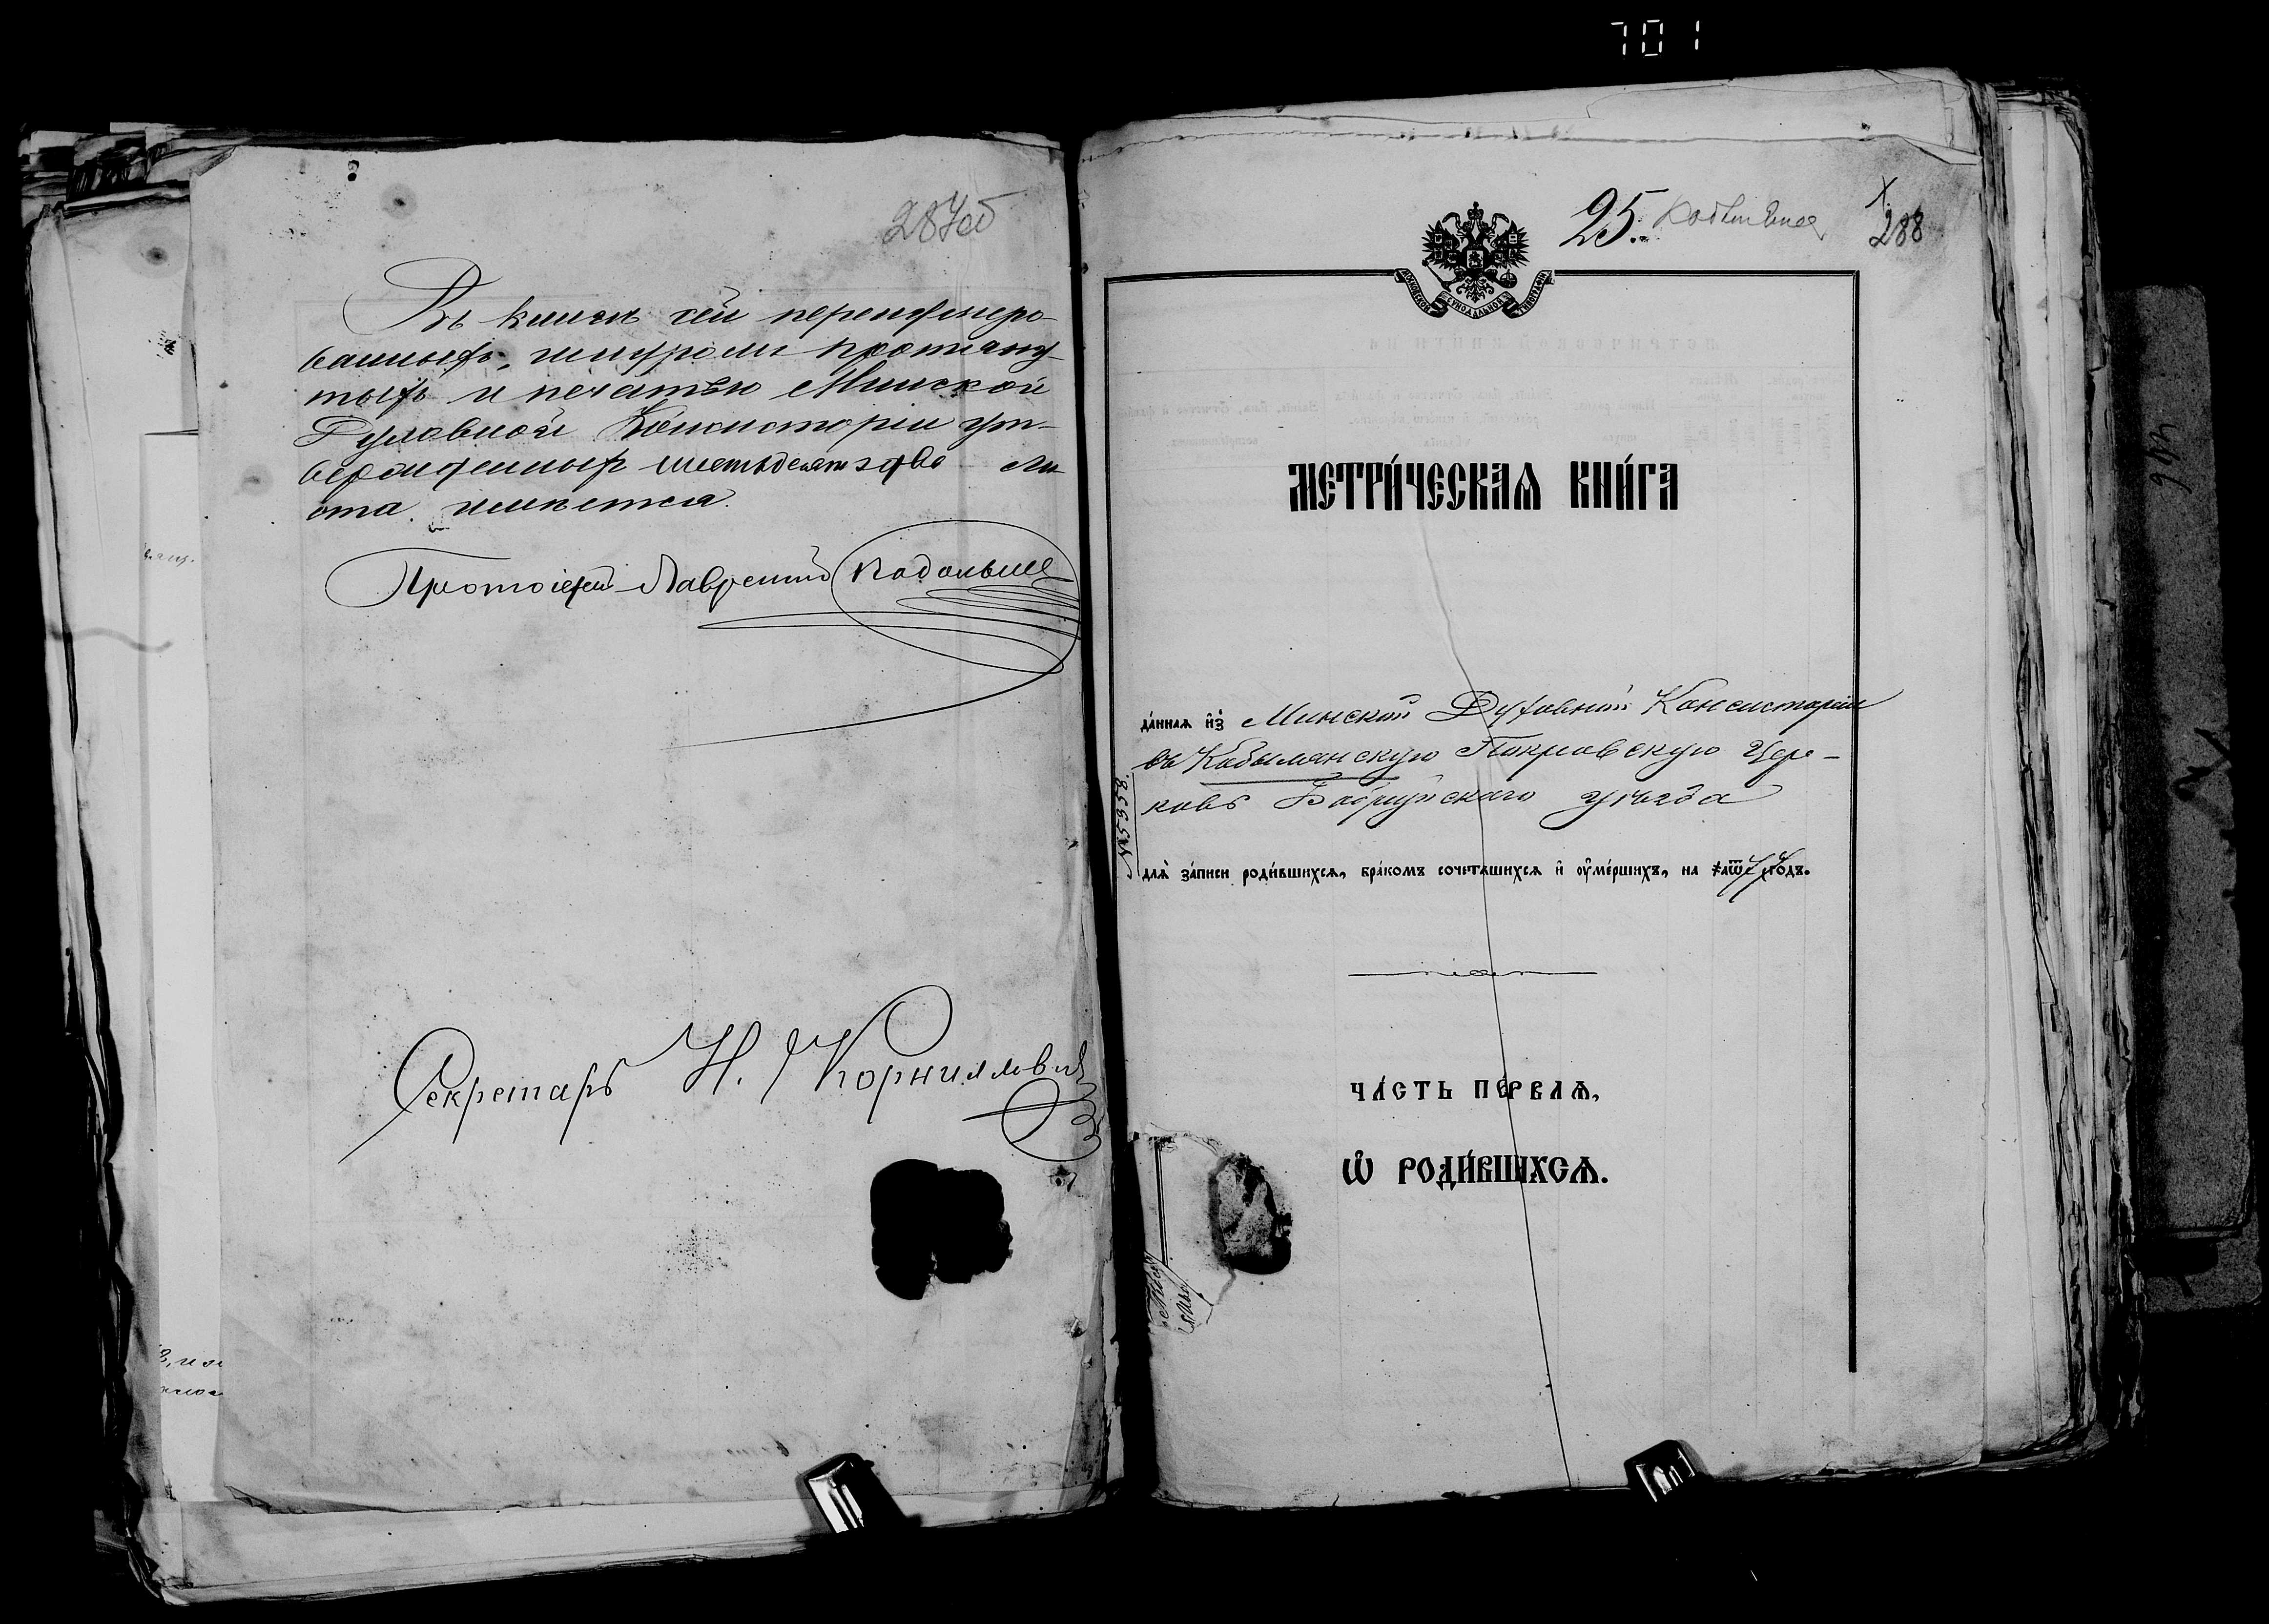 701
287об
Въ книгѣ сей перенумеро-
ванныхъ, шнуромъ протяну-
тыхъ и печатью Минской
Духовной Консисторіи ут-
вержденныхъ шестьдесятъ два ли-
ста имѣется.
Протоіерей Лаврентій
Секретарь Н. Корниловичъ
25.
288
МОСКОВСКОЙ СѴНОДАЛЬНОЙ ТИПОГРАФІИ
МЕТРИ́ЧЕСКАѦ КНИ́ГА
да́ннаѧ и҆з̾ Минской Духовной Консисторіи
въ Кобылянскую Покровскую Цер-
ковь Бобруйскаго уѣзда
№ 5958.
длѧ̀ за́писи роди́вшихсѧ, бра́комъ сочета́вшихсѧ и҆ ᲂу҆ме́ршихъ, на ҂аѿ77 го́дъ.
ЧА́СТЬ ПЕ́РВАѦ,
Ѡ҆ РОДИ́ВШИХСѦ.